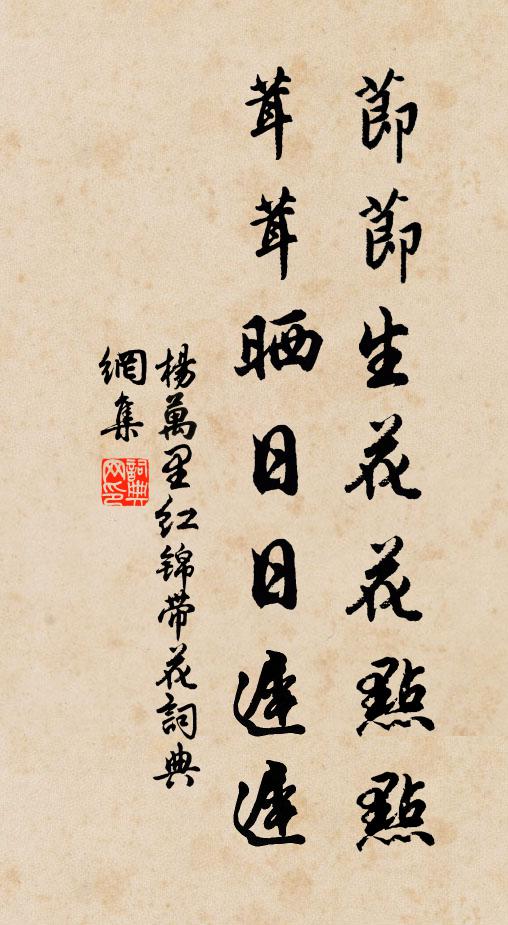 節節生花花點點
茸茸晒日日遲遲
楊萬里紅錦帶花詞典
網集
詞典
网印